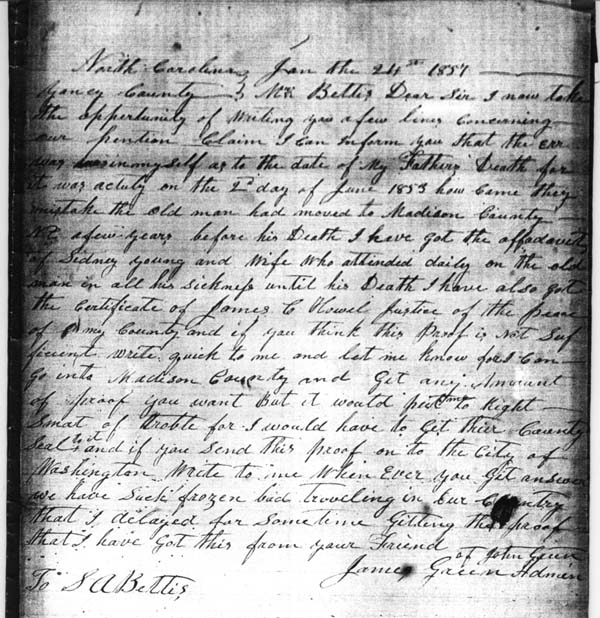 North Carolina } Jan the 24th 1857
Yancy County } Mr. Bettis Dear Sir I now take
the opportunity of Writing you a few lines Concerning
our pention Claim I Can Inform you that the err
was in my self as to the date of My Fathers Death for
it was actuly on the 2d day of June 1853 how Came they
mistake the old man had moved to Madison County
NC a few years before his Death I have got the affadavit
of Sidney Young and Wife Who attended daily on the old
man in all his sickness until his Death I have also got
the Certificate of James C Howel Justice of the peace
of my County and if you think this Proof is Not Suf
ficient Write quick to me and let me know for I Can
Go into Madison County and Get any Amount
of proof you want But it would put me to Right
Smat of troble for I would have to Get thier County
Seal to it and if you Send this proof on to the City of
Washington Write to me When Ever you Get answer
we have Such frozen bad traveling in our Country
that I delayed for Sometime Gitting the proof
that I have Got this from your Friend
James Green Admin
of John Green
To S A Bettis